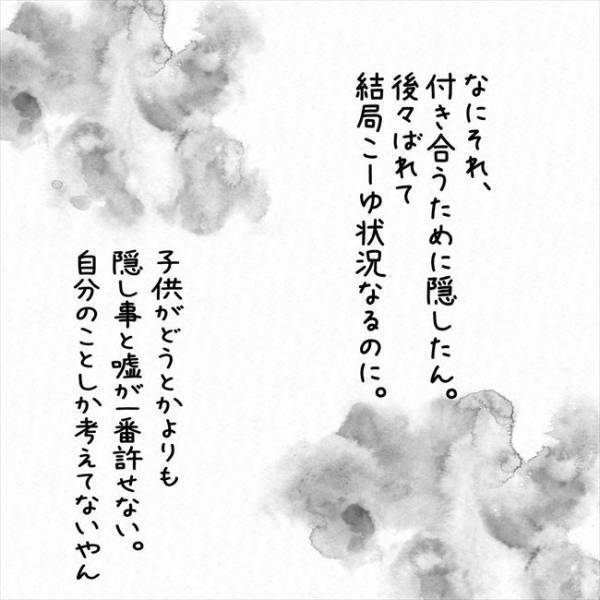 なにそれ、
付き合うために隠したん。
後々ばれて
結局こーゆ状況なるのに。
子供がどうとかよりも
隠し事と嘘が一番許せない。
自分のことしか考えてないやん